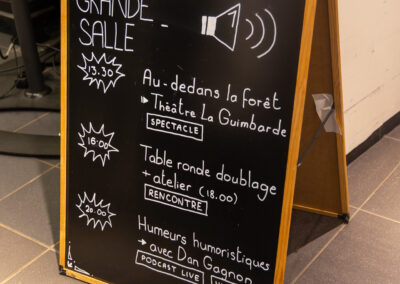 GRANDE
SALLE
13.30
Au-dedans la forêt
Théâtre La Guimbarde
SPECTACLE
16:00
Table ronde doublage
+ atelier (18.00)
RENCONTRE
20.00
Humeurs humoristiques
avec Dan Gagnon
PODCAST LIVE